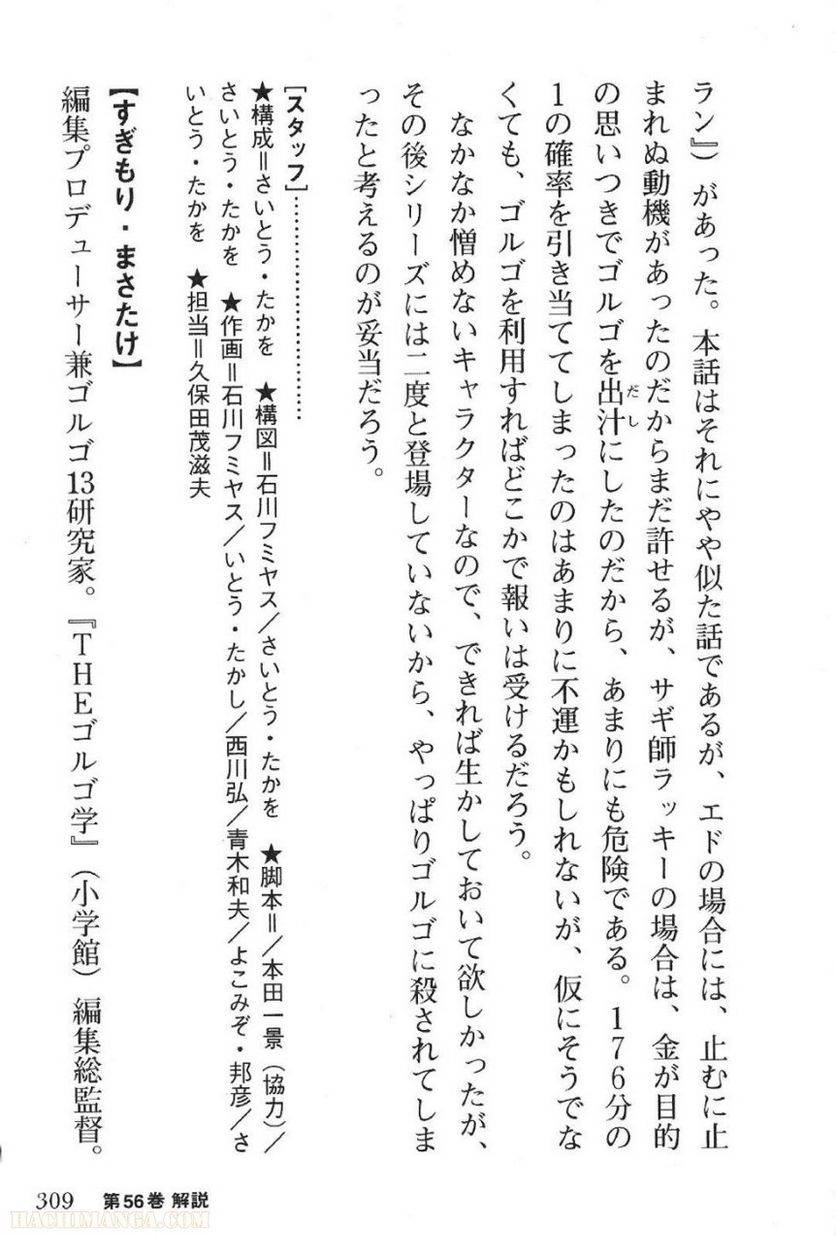 ラン』）があった。本話はそれにやや似た話であるが、エドの場合には、止むに止
まれぬ動機があったのだからまだ許せるが、サギ師ラッキーの場合は、金が目的
の思いつきでゴルゴを出汁にしたのだから、あまりにも危険である。176分の
だし
1の確率を引き当ててしまったのはあまりに不運かもしれないが、仮にそうでな
くても、ゴルゴを利用すればどこかで報いは受けるだろう。
なかなか憎めないキャラクターなので、できれば生かしておいて欲しかったが、
その後シリーズには二度と登場していないから、やっぱりゴルゴに殺されてしま
ったと考えるのが妥当だろう。
［スタッフ］…………………………
★構成＝さいとう・たかを　★構図＝石川フミヤス／さいとう・たかを　★脚本＝／本田一景（協力）／
さいとう・たかを　★作画＝石川フミヤス／いとう・たかし／西川弘／青木和夫／よこみぞ・邦彦／さ
いとう・たかを　★担当＝久保田茂滋夫
【すぎもり・まさたけ】
編集プロデューサー兼ゴルゴ13研究家。『THEゴルゴ学』（小学館）編集総監督。
309　第56巻 解説
HACHIMANGA.COM